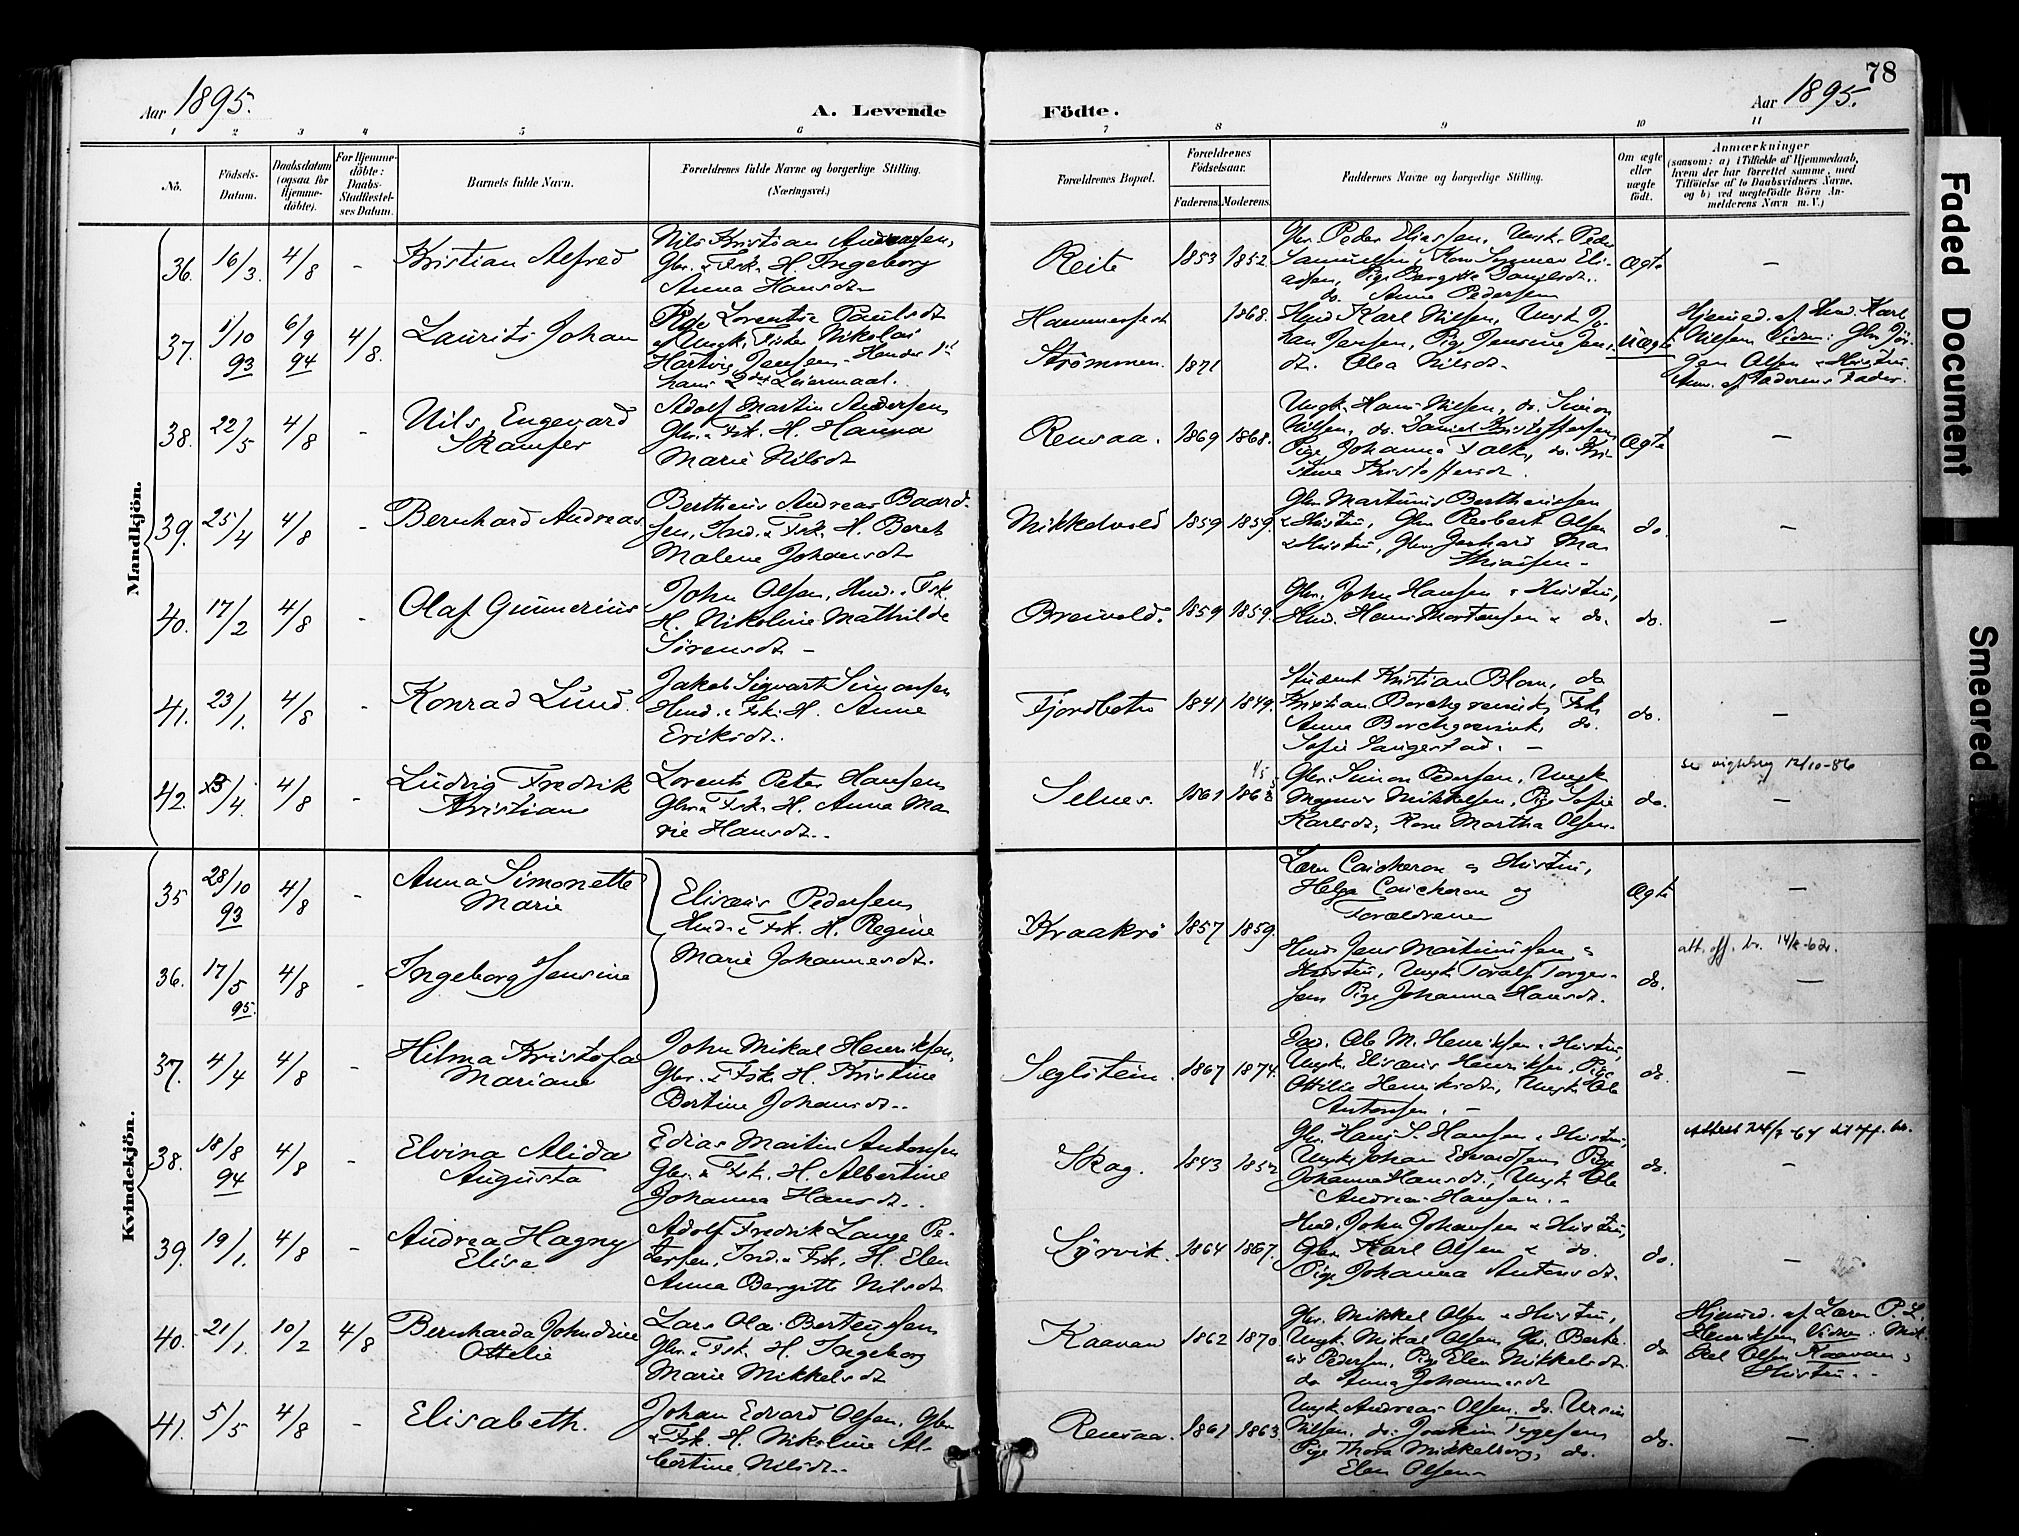 78
Aar 1895.
A. Levende
Födte.
Aar 1895.
1 2 3 4 5 6 7 8 9 10 11
No.
Födsels-
Datum.
Daabsdatum
(ogsaa for
Hjemme-
döbte).
For Hjemme-
döbte:
Daabs-
Stadfæstel-
ses Datum.
Barnets fulde Navn.
Forældrenes fulde Navne og borgerlige Stilling.
(Næringsvei.)
Forældrenes Bopæl.
Forældrenes
Födselsaar.
Faderens. Moderens.
Faddernes Navne og borgerlige Stilling.
Om ægte
eller
uægte
födt.
Anmærkninger
(saasom: a) i Tilfælde af Hjemmedaab,
hvem der har forrettet samme, med
Tilföielse af to Daabsvidners Navne,
og b) ved uægtefödte Börn An-
melderens Navn m. V.)
Mandkjön.
36. 16/3. 4/8 - Kristian Alfred
Nils Kristian Andersen,
Gbr. & Fsk. H. Ingeborg
Anna Hansdt.
Reite 1853 1852
Gbr. Peder Eliassen, Ungk. Peder
Samuelsen,
do. Anna Pedersen
Ægte -
37. 1/10 93 6/9 94 4/8. Laurits Johan
Pige Lorentse Paulsdt
af Ungk. Fisker Nikolai
Hartvig Jensen. Hendes 1st
hans 2det Leiermaal.
Hammerfest 1868.
Strömmen. 1871
Ind. Karl Nilsen, Ungk. Jo-
han Jensen, Pige Jensine Jens-
dt. Olea Nilsdt.
Uægte
Hjemmed. af Ind. Karl
Nilsen Vidner: Gbr. Jör-
gen Olsen & Hustru.
Anm. af Faderens Fader.
38. 22/5 4/8 - Nils Engevard
Skamfer
Adolf Martin Andersen
Gbr. & Fsk. H. Hanna
Marie Nilsdt
Rensaa. 1869 1868.
Ungk. Hans Nilsen, do. Simon
Nilsen, do. Daniel Kristoffersen,
Pige Johanna Falk, do. Kri-
stine Kristoffersdt.
Ægte -
39. 25/4 4/8 - Bernhard Andreas
Bertheus Andreas Baard-
sen, Ind. & Fsk. H. Beret
Malene Johansdt
Nikkelvold 1859 1859.
Gbr. Martinus Bertheussen
& Hustru, Gbr. Olsen
& Hustru, Gbr. Gerhard Ma-
thiassen -
do. -
40. 17/2 4/8 - Olaf Gunnerius
John Olsen, Ind. & Fsk.
H. Nikoline Mathilde
Sörensdt -
Breivold. 1859 1859.
Gbr. John Hansen & Hustru,
Ind. Hans Mortensen & do.
do. -
41. 23/1. 4/8 - Konrad Lund.
Jakob Sigvart Simonsen
Ind. & Fsk. H. Anne
Eriksdt.
Fjordbotn 1841 1849.
Student Kristian Blom, do
Kristian Borchgrevink, Frk.
Anna Borchgrevink, do.
Sofie -
do. -
42. 3/4. 4/8 - Ludvig Fredrik
Kristian
Lorents Peter Hansen
Gbr. & Fsk. H. Anna Ma-
rie Hansdt.
Selnes. 1861 1868
Gbr. Simon Pedersen, Ungk.
Magnus Mikkelsen, Pige Sofie
Karlsdt, Kone Martha Olsen.
do. -
Kvindekjön.
35 28/10 93 4/8 - Anna Simonette
Marie
Elisæus Pedersen
Ind. & Fsk. H. Regine
Marie Johannesdt.
Kraakrö 1857 1859
Lærer & Hustru,
Helga og
Forældrene
Ægte -
36. 17/5 95. 4/8 - Ingeborg Jensine
Ind. Jens Martinussen &
Hustru, Ungk. Toralf Torger-
sen Pige Johanna Hansdt.
do. -
37. 4/4 4/8 - Hilma Kristofa
Mariane
John Mikal Henriksen,
Gbr. & Fsk. H. Kristine
Bertine Johansdt.
Seglstein. 1867 1874.
Ole M. Henriksen & Hustru,
Ungk. Elisæus Henriksen, Pige
Ottilie Henriksdt, Ungk. Ole
Antonsen. -
do. -
38. 18/8 94 4/8 - Elvina Alida
Augusta
Edias Martin Antonsen
Gbr. & Fsk. H. Albertine
Johanna Hansdt.
Skog. 1843 1852
Gbr. Hans S. Hansen & Hustru,
Ungk. Johan Edvardsen, Pige
Johanna Hansdt, Ungk. Ole
Andreas Hansen. -
do. -
39. 19/1. 4/8 - Andrea Hagny
Elise
Adolf Fredrik Lange Pe-
dersen, Ind. & Fsk. H. Elen
Anna Bergitte Nilsdt
Lyrvik. 1864 1867.
Ind. John Johansen & Hustru,
Gbr. Karl Olsen & do.
Pige Johanna Antonsdt.
do. -
40. 21/1. 10/2 4/8 Bernharda Johndine
Ottelie
Lars Olai Berteussen
Gbr. & Fsk. H. Ingeborg
Marie Mikkelsdt
Kaavan 1862 1870.
Gbr. Mikkel Olsen & Hustru,
Ungk. Mikal Olsen, Gbr. Berte-
us Pedersen, Pige Elen Mikkelsdt.
do Anna Johannesdt
do
Hjemmed. af Lærer P. L.
Henriksen Vidner: Mik-
kel Olsen Kaavan &
Hustru. -
41. 5/5 4/8 - Elisabeth.
Johan Edvard Olsen, Gbr.
& Fsk. H. Nikoline Al-
bertine Nilsdt.
Rensaa. 1861 1863.
Ungk. Andreas Olsen, do.
Nilsen, do. Joakim Tygesen
Pige Thora Mikkelborg, do.
Elen Olsen
do. -
Faded Document
Smeared